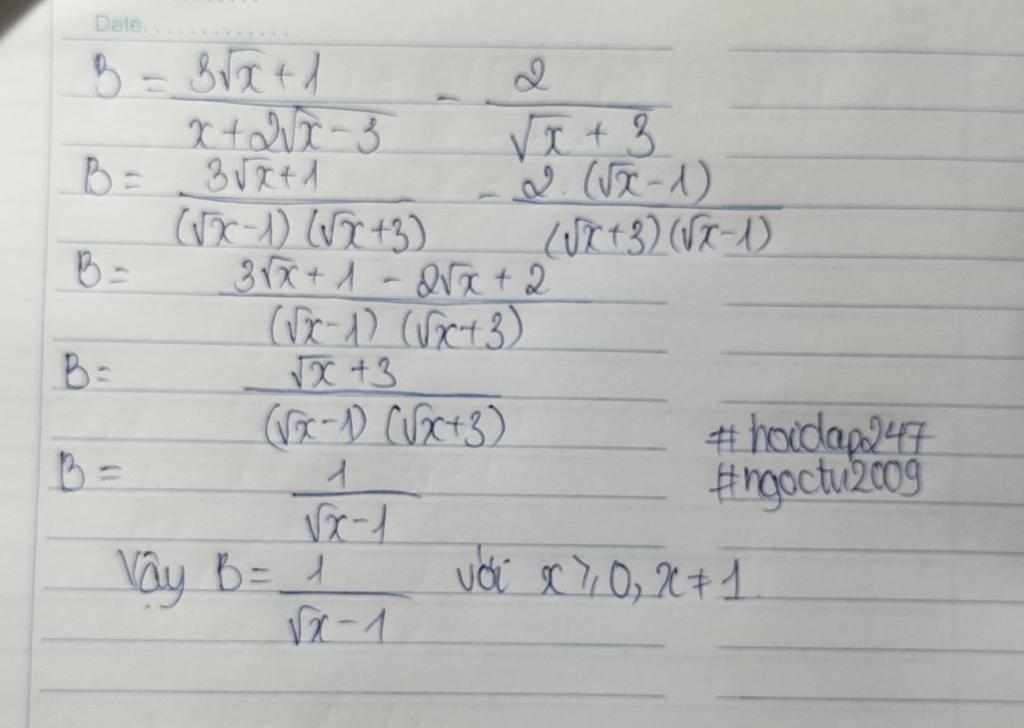 Date..............
B = (3√x + 1)/(x + 2√x - 3) - 2/(√x + 3)
B = (3√x + 1)/((√x - 1)(√x + 3)) - 2.(√x - 1)/((√x + 3)(√x - 1))
B = (3√x + 1 - 2√x + 2)/((√x - 1)(√x + 3))
B = (√x + 3)/((√x - 1)(√x + 3))
#hoidap247
B = 1/(√x - 1)
#ngoctu2009
Vậy B = 1/(√x - 1) với x ⩾ 0, x ≠ 1.